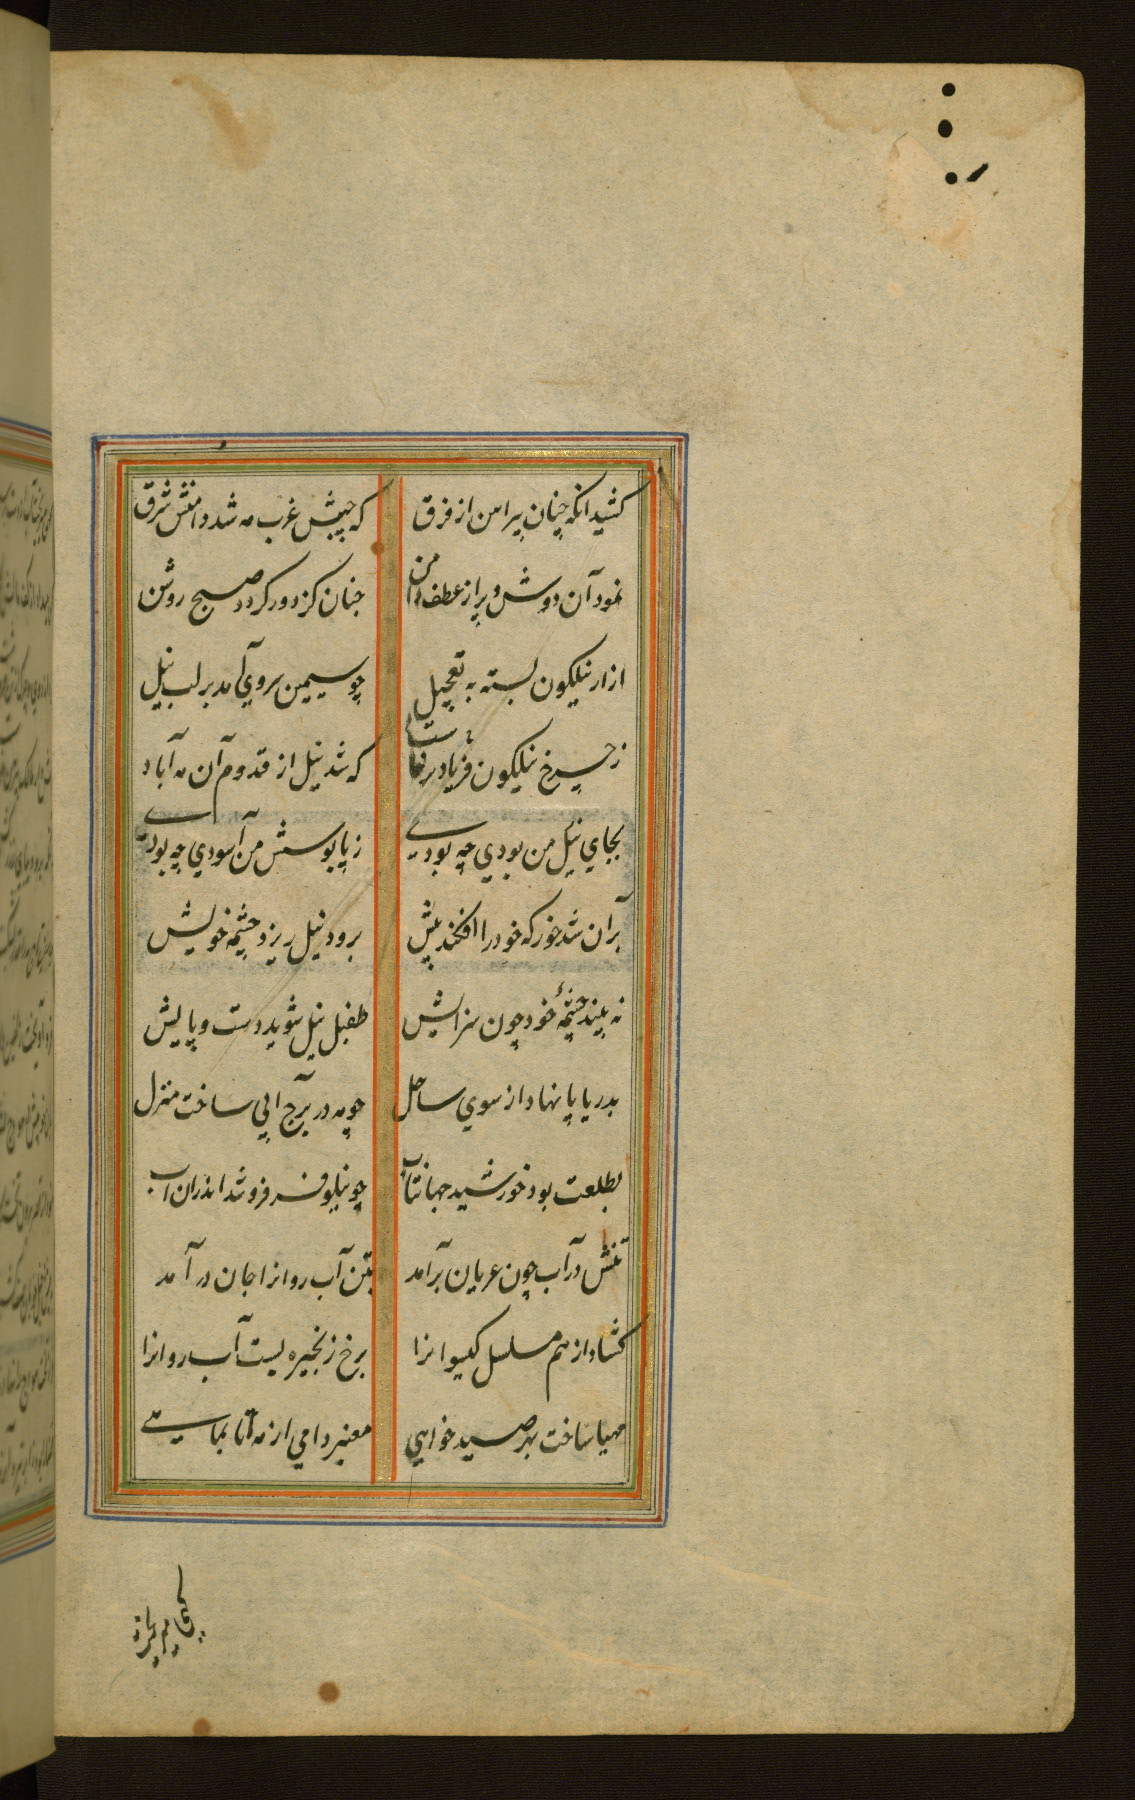 کشید انکه چنان پیراهن از فرق که جیبش غرب مه شد دامنش شرق
نمود آن دوش و بر از عطف دامن چنان کز دور کردد صبح روشن
ازار نیلکون بسته به تعجیل چو سیمین سروی آمد بر لب نیل
ز چرخ نیلکون فریاد برخاست که شد نیل از قدوم آن مه آباد
بجای نیل من بودی چه بودی ز پا بوسش من آسودی چه بودی
بر آن شد خور که خود را افکند پیش برود نیل ریزد چشمه خویش
نه بیند چشمهٔ خود چون سزایش طفیل نیل شوید دست و پایش
بدریا پا نهاد از سوی ساحل چو مه در برج ابی ساخت منزل
بطلعت بود خورشید جهانتاب چو نیلوفر فرو شد اندران اب
تنش در آب چون عریان برآمد بتن آب روانرا جان در آمد
کشاد از هم مسلسل کیسوانرا برخ زنجیره بست آب روانرا
مهیا ساخت بهر صید خواهی معنبر دامی از مه تا بماهی
کهی میریخت